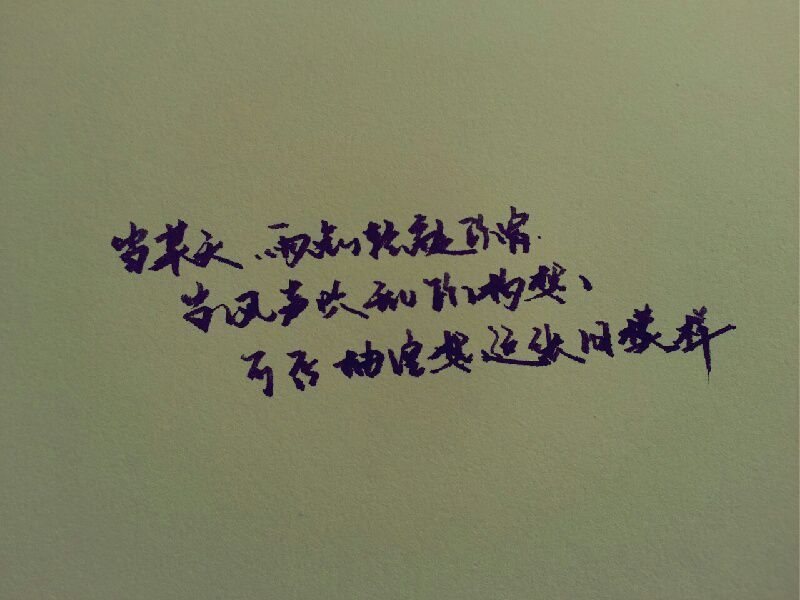 当某天、雨点轻敲你窗.
当风声吹乱你构想、
可否抽空想这张旧模样